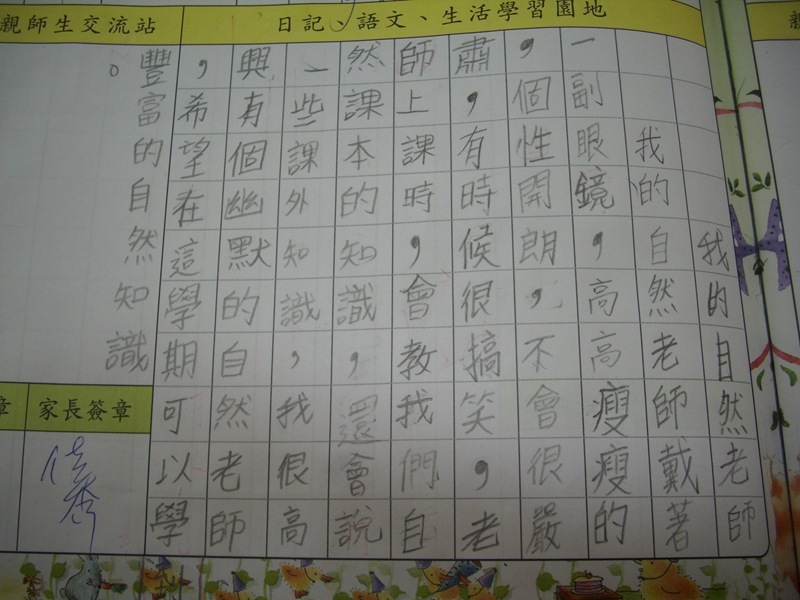 日記、語文、生活學習園地
我的自然老師
我的自然老師戴著
一副眼鏡，高高瘦瘦的
，個性開朗，不會很嚴
肅，有時候很搞笑，老
師上課時，會教我們自
然課本的知識，還會說
一些課外知識，我很高
興有個幽默的自然老師
，希望在這學期可以學
豐富的自然知識
。
親師生交流站
家長簽章
章
親